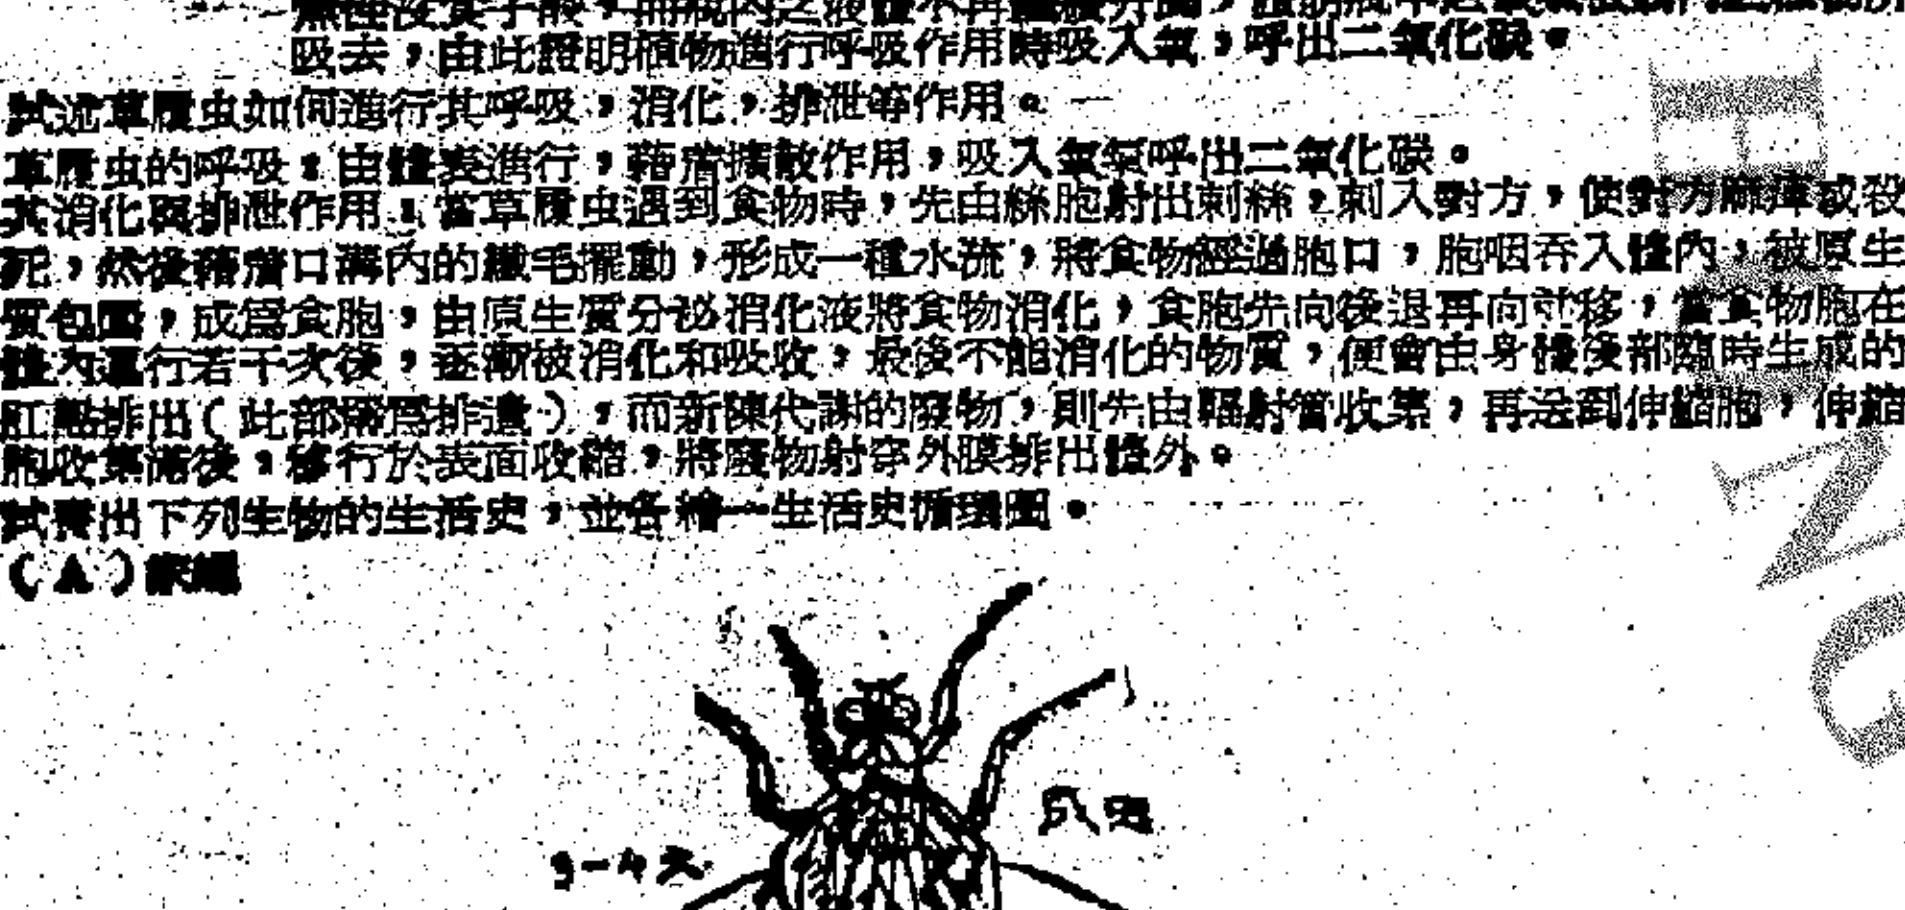 吸去，由此證明植物進行呼吸作用時吸入氧，呼出二氧化碳。
試述草履虫如何進行其呼吸，消化，排泄等作用。
草履虫的呼吸：由體表進行，藉着擴散作用，吸入氧氣呼出二氧化碳。
其消化與排泄作用：當草履虫遇到食物時，先由絲胞射出刺絲，刺入對方，使對方麻痺或殺
死，然後藉着口溝內的纖毛擺動，形成一種水流，將食物經過胞口，胞咽吞入體內，被原生
質包圍，成爲食胞，由原生質分泌消化液將食物消化，食胞先向後退再向前移，當食物胞在
體內運行若干次後，逐漸被消化和吸收，最後不能消化的物質，便會由身體後部臨時生成的
肛點排出(此部屬爲排遺)，而新陳代謝的廢物，則先由輻射管收集，再送到伸縮胞，伸縮
胞收集滿後，移行於表面收縮，將廢物射穿外膜排出體外。
試寫出下列生物的生活史，並各繪一生活史循環圖。
(A)家蠅
成蟲